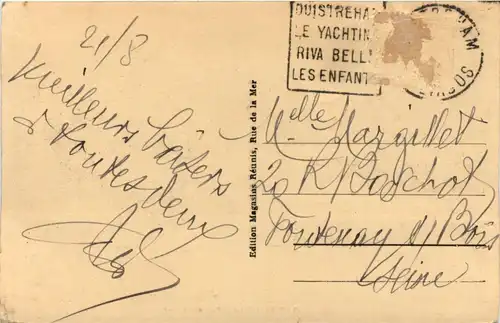 21/8
Meilleurs baisers
à toutes deux
OUISTREHAM
LE YACHTIN
RIVA BELL
LES ENFANT
Edition Magasins Réunis, Rue de la Mer
Melle Margillet
20 R Boschot
Fontenay s/ Bois
(Seine)